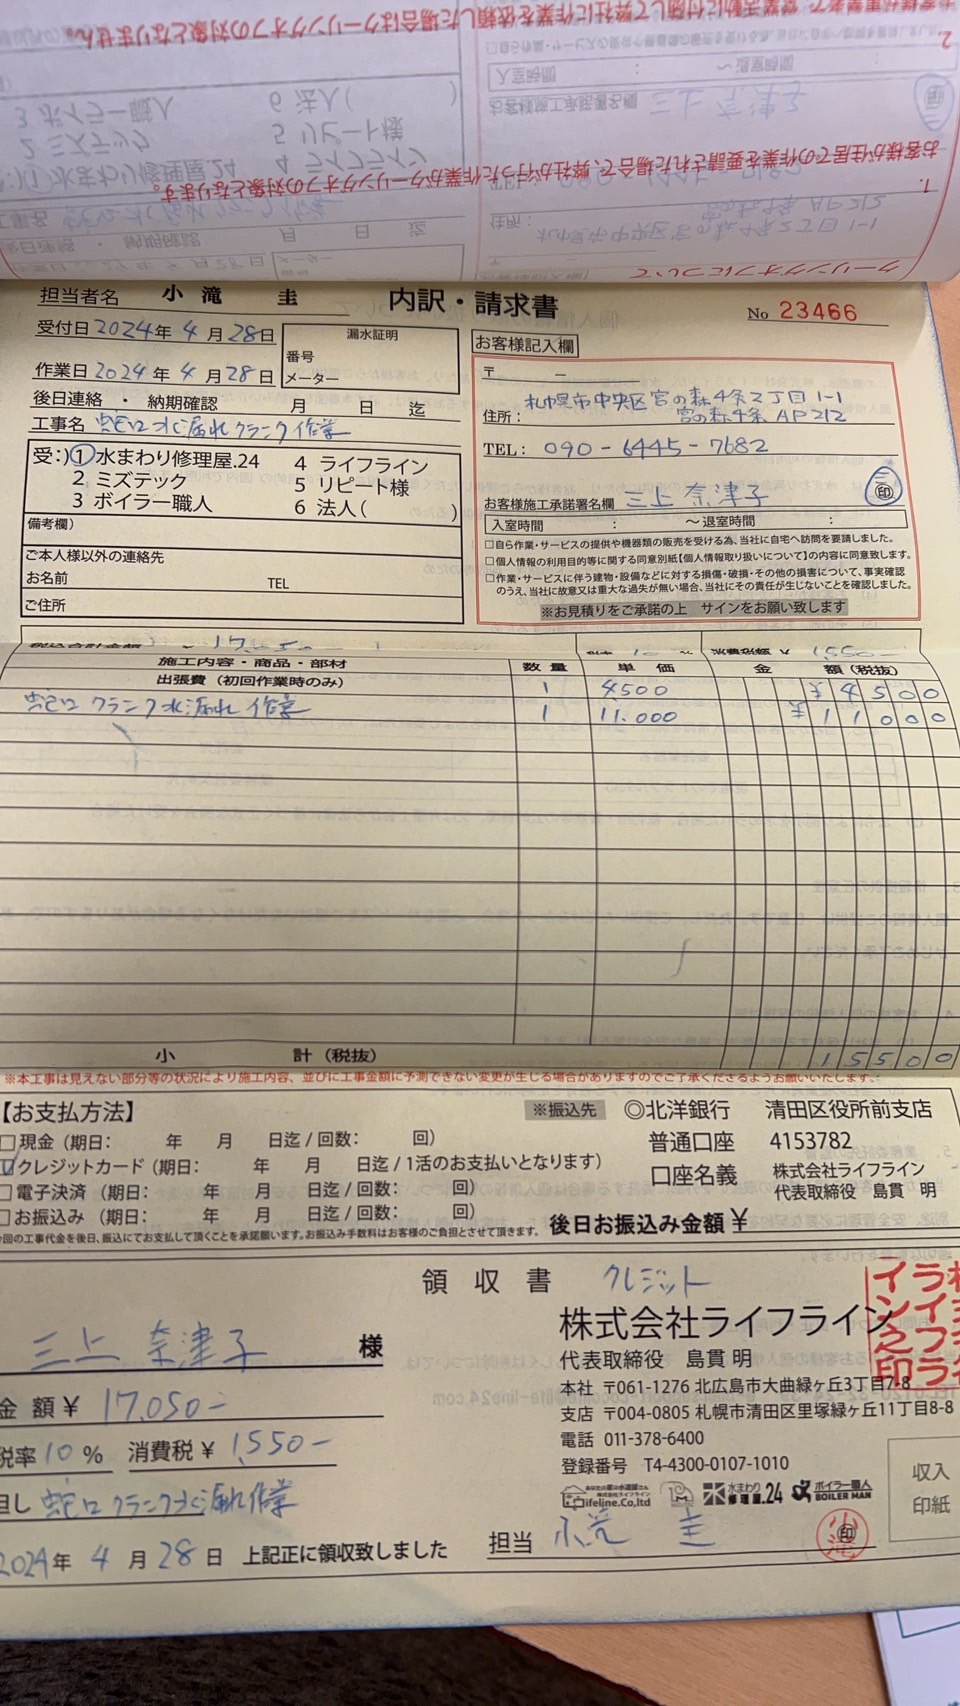 2.
お客様が住居での作業を要請された場合で、弊社が行った作業がクーリングオフの対象となります。
1.
クーリングオフについて
担当者名 小滝 圭 内訳・請求書 No 23466
受付日 2024年 4月 28日
漏水証明
番号
メーター
お客様記入欄
作業日 2024年 4月 28日
〒 －
後日連絡 ・ 納期確認 月 日 迄
住所: 札幌市中央区宮の森4条2丁目1-1
宮の森4条 AP212
工事名 蛇口水漏れクランク作業
TEL: 090-6445-7682
受:)①水まわり修理屋.24 4 ライフライン
2 ミズテック 5 リピート様
3 ボイラー職人 6 法人( )
お客様施工承諾署名欄 三上 奈津子 印
入室時間 : ～退室時間 :
備考欄)
□自ら作業・サービスの提供や機器類の販売を受ける為、当社に自宅へ訪問を要請しました。
□個人情報の利用目的等に関する同意別紙【個人情報取り扱いについて】の内容に同意致します。
□作業・サービスに伴う建物・設備などに対する損傷・破損・その他の損害について、事実確認
のうえ、当社に故意又は重大な過失が無い場合、当社にその責任が生じないことを確認しました。
※お見積りをご承諾の上 サインをお願い致します
ご本人様以外の連絡先
お名前 TEL
ご住所
施工内容・商品・部材 数量 単価 金額(税抜)
出張費(初回作業時のみ) 1 4500 ¥4500
蛇口クランク水漏れ作業 1 11.000 ¥11000
小計(税抜) 15500
※本工事は見えない部分等の状況により施工内容、並びに工事金額に予測できない変更が生じる場合がありますのでご了承くださるようお願いいたします。
【お支払方法】
□現金(期日: 年 月 日迄/回数: 回)
☑クレジットカード(期日: 年 月 日迄/1活のお支払いとなります)
□電子決済(期日: 年 月 日迄/回数: 回)
□お振込み(期日: 年 月 日迄/回数: 回)
今回の工事代金を後日、振込にてお支払して頂くことを承諾願います。お振込み手数料はお客様のご負担とさせて頂きます。
※振込先 ◎北洋銀行 清田区役所前支店
普通口座 4153782
口座名義 株式会社ライフライン
代表取締役 島貫 明
後日お振込み金額 ¥
領収書 クレジット
三上 奈津子 様
金額¥ 17,050-
税率10% 消費税¥ 1,550-
但し 蛇口クランク水漏れ作業
2024年 4月 28日 上記正に領収致しました
株式会社ライフライン
代表取締役 島貫 明
本社 〒061-1276 北広島市大曲緑ヶ丘3丁目7-8
支店 〒004-0805 札幌市清田区里塚緑ヶ丘11丁目8-8
電話 011-378-6400
登録番号 T4-4300-0107-1010
Lifeline.Co,ltd 水まわり修理屋.24 ボイラー職人 BOILER MAN
担当 小滝 圭 印
収入
印紙